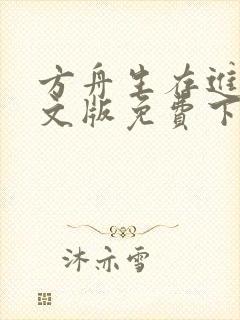 方舟生存进
文版免费下
沐亦雪